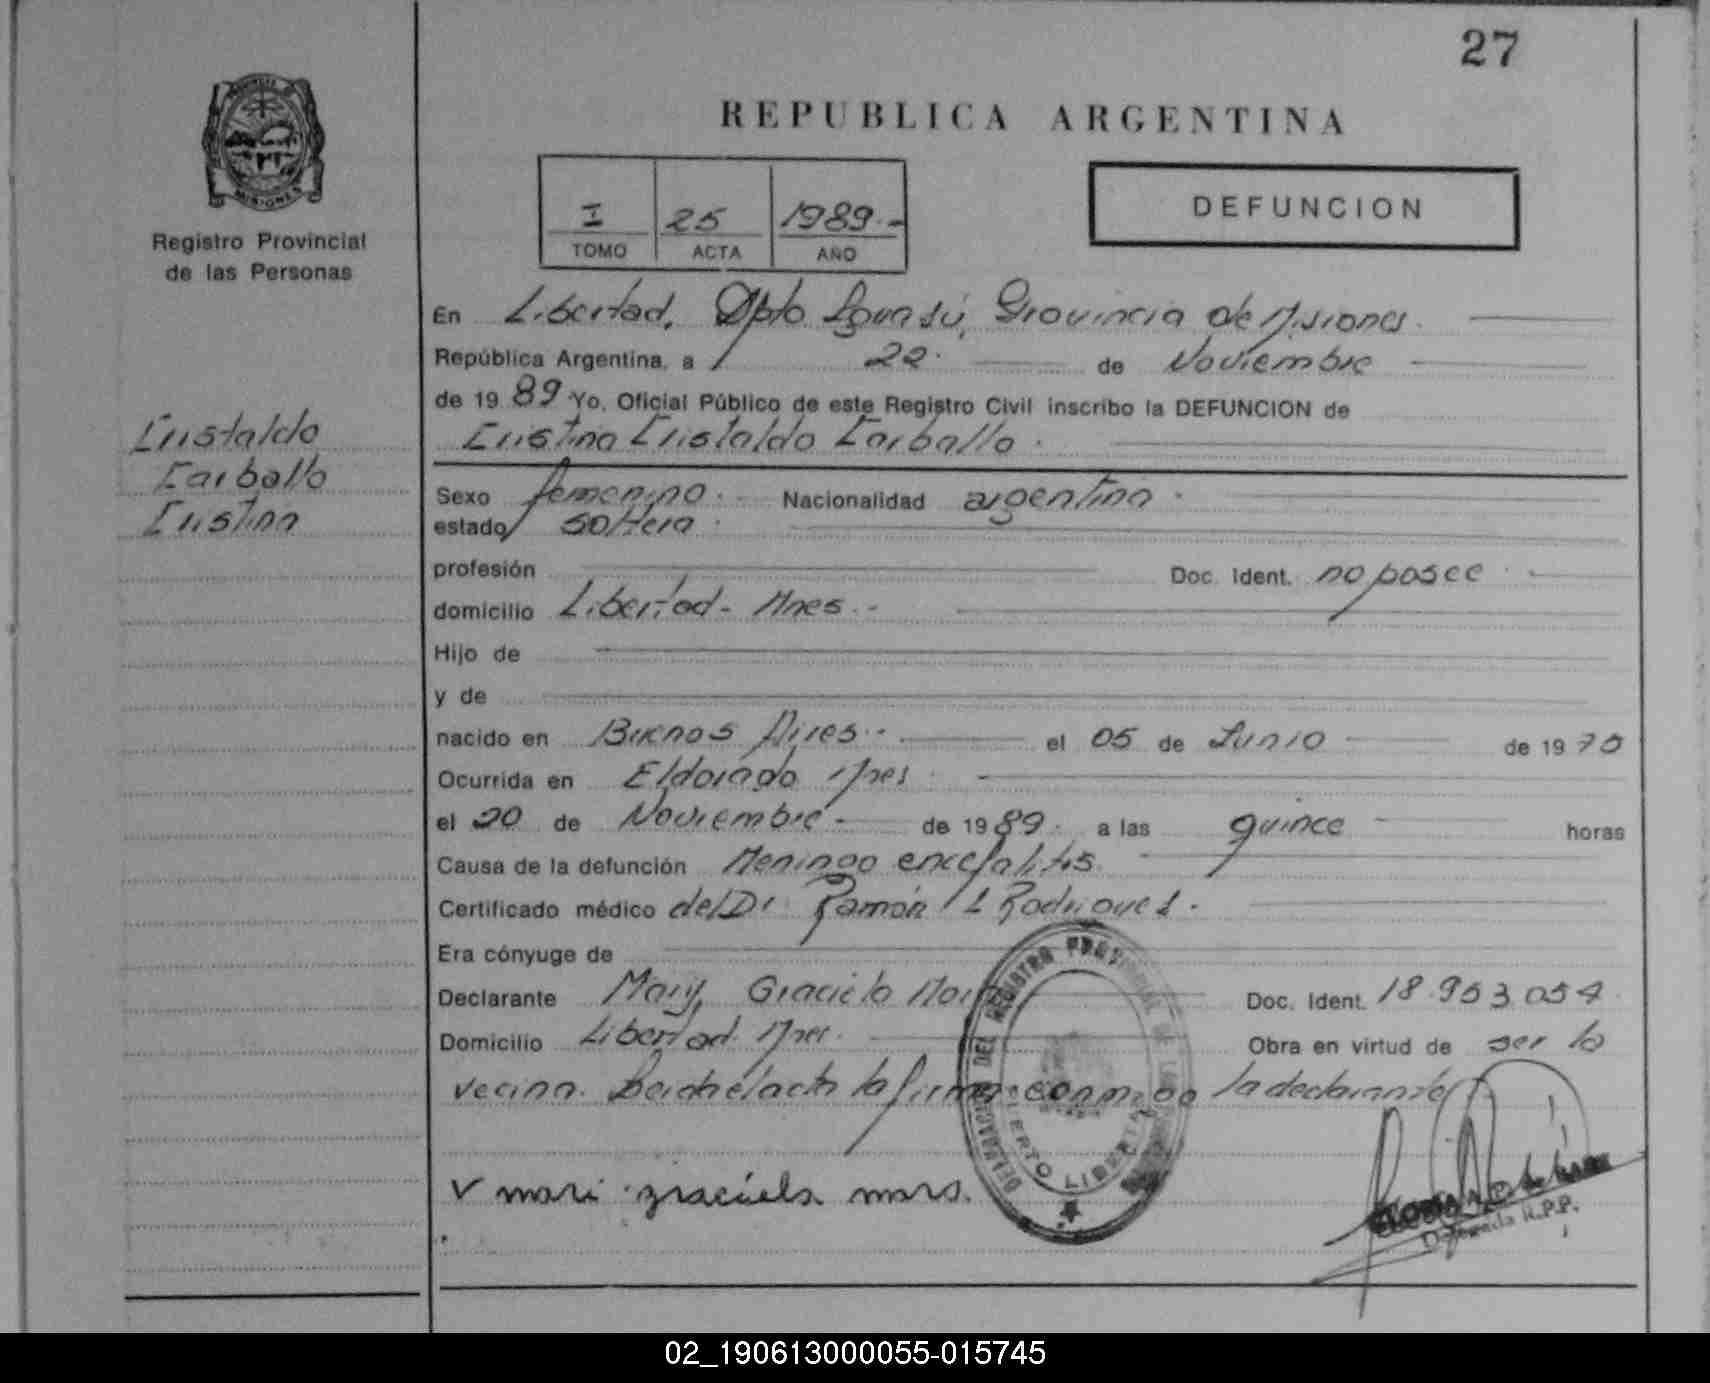 27
REPUBLICA ARGENTINA
MISIONES
Registro Provincial
de las Personas
I 25 1989.-
TOMO ACTA AÑO
DEFUNCION
En Libertad, Dpto Iguasú, Provincia de Misiones.
República Argentina, a 22. de Noviembre
de 19 89 Yo, Oficial Público de este Registro Civil inscribo la DEFUNCION de
Cristina Cristaldo Carballo.
Cristaldo
Carballo
Cristina
Sexo femenino. Nacionalidad argentina.
estado soltera.
profesión Doc. Ident. no posee.
domicilio Libertad - Mnes.-
Hijo de
y de
nacido en Buenos Aires.- el 05 de Junio de 19 70
Ocurrida en Eldorado Mnes.
el 20 de Noviembre de 19 89. a las quince horas
Causa de la defunción Meningo encefalitis.
Certificado médico del Dr. Ramón L Rodrigues.
Era cónyuge de
Declarante Mary Graciela Doc. Ident. 18.953.054
Domicilio Libertad Mnes. Obra en virtud de ser la
vecina. la firma conmigo la declarante
V mari graciela mars.
DELEGACION DEL REGISTRO PROVINCIAL DE LAS
PUERTO LIBERTAD
Delegada R.P.P.
02_190613000055-015745